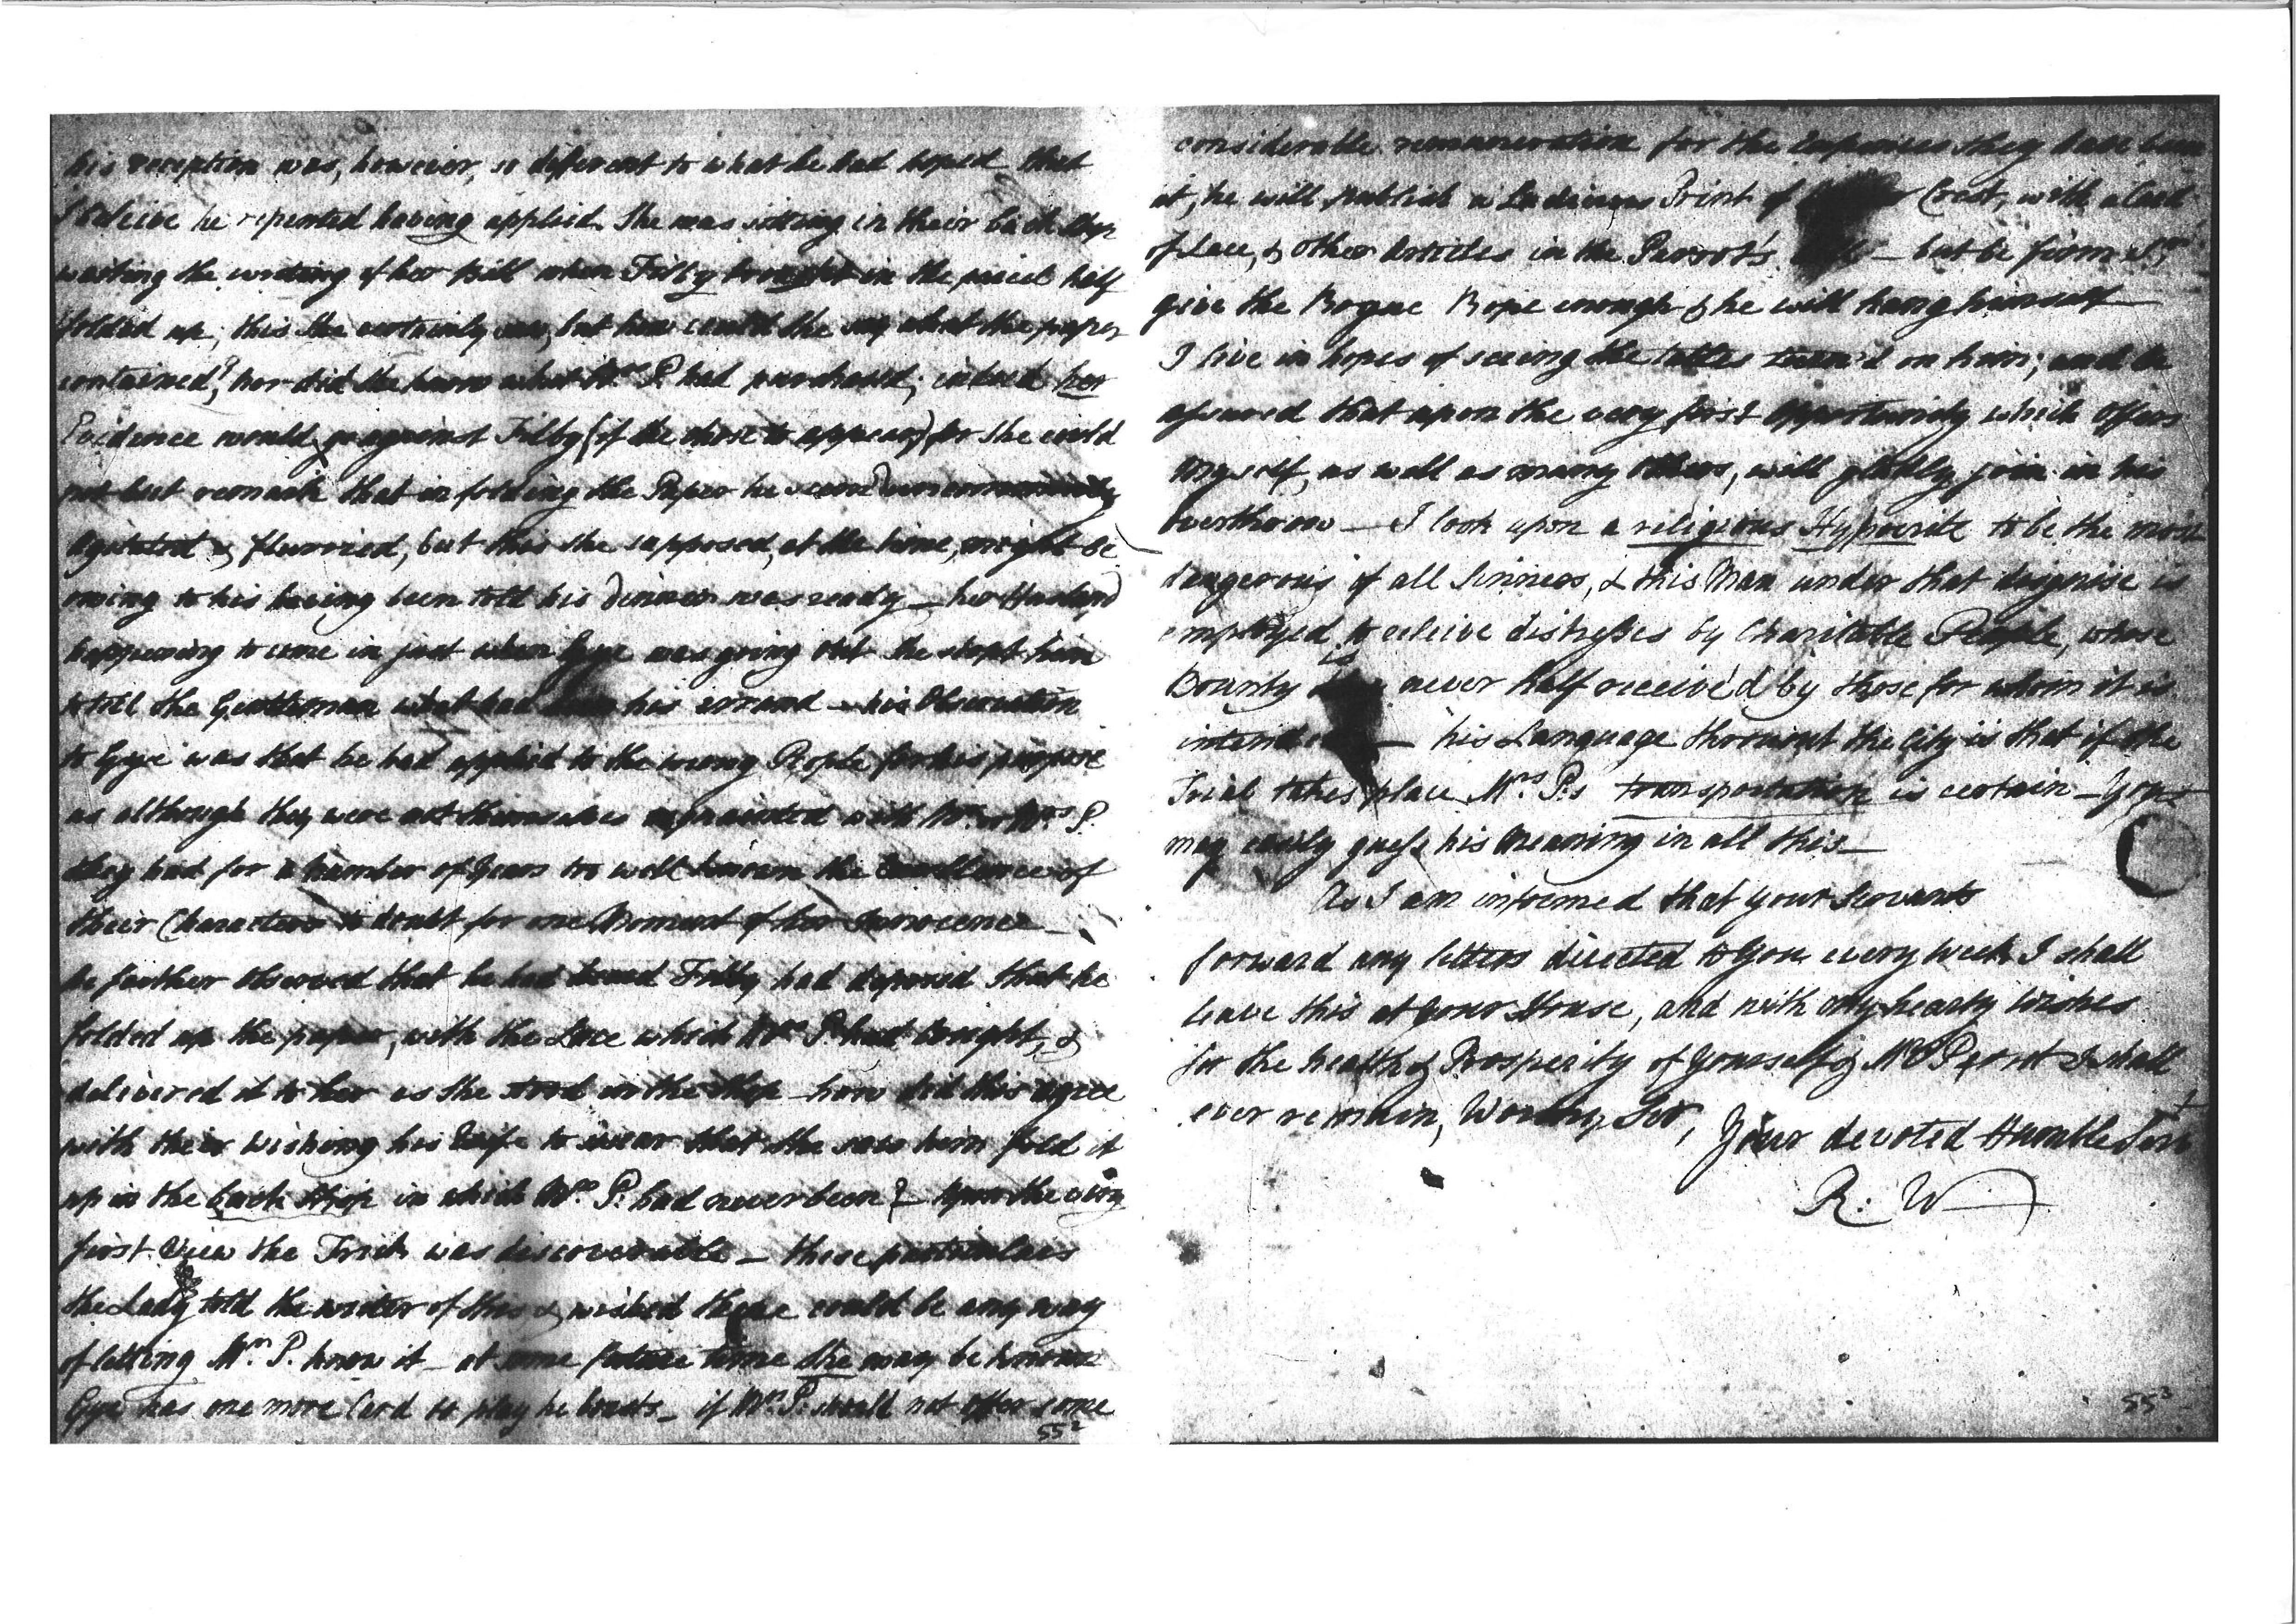 his reception was, however, so different to what he had hoped that
I beleive he repented having applied. She was sitting in their back shop
waiting the writing of her Bill when Filby brought in the parcel half
folded up; this she certainly saw, but how could she say what the paper
contained? nor did she know what Mrs. P. had purchased; indeed her
Evidence would go against Filby (if she chose to appear) for she could
not but remark that in folding the Paper he seem'd uncommonly
agitated & flurried, but this she supposed, at the time, might be
owing to his having been told his Dinner was ready — her Husband
happening to come in just when Gye was going out she stopt him
to tell the Gentleman what had been his errand — his Observation
to Gye was that he had applied to the wrong People for his purpose
as although they were not themselves acquainted with Mr. or Mrs. P.
they had for a number of Years too well known the Excellence of
their Characters to doubt for one Moment of her Innocence —
he further observed that he had heard Filby had deposed that he
folded up the paper, with the Lace which Mrs. P. had bought, &
delivered it to her as she stood in the shop — how did this agree
with their wishing his Wife to swear that she saw him fold it
up in the back shop in which Mrs. P. had never been? — upon the very
first View the Trick was discoverable — these particulars
the Lady told the writer of this & wished there could be any way
of letting Mrs. P. know it — at some future time she may be known
Gye has one more Card to play he boasts — if Mr. P. should not offer some
55²
considerable remuneration for the Expences they have been
at, he will publish a Ludicrous Print of Crest, with a Card
of Lace, & other Articles in the Parrot's — but be firm Sir,
give the Rogue Rope enough & he will hang himself —
I live in hopes of seeing the tables turn'd on him; and be
assured that upon the very first Opportunity which offers
myself, as well as many others, will gladly join in his
overthrow — I look upon a religious Hypocrite to be the most
dangerous of all Sinners, & this Man under that disguise is
employed to releive distresses by Charitable People, whose
Bounty is never half receiv'd by those for whom it is
intended — his Language throwout the City is that if the
Trial takes place Mrs. P.s transportation is certain — You
may easily guess his Meaning in all this —
As I am informed that your Servants
forward any letters directed to You every week I shall
leave this at your House, and with my hearty wishes
for the health & Prosperity of Yourself & Mrs Perrot I shall
ever remain, Worthy Sir,
Your devoted Humble Servt
R. W
55³